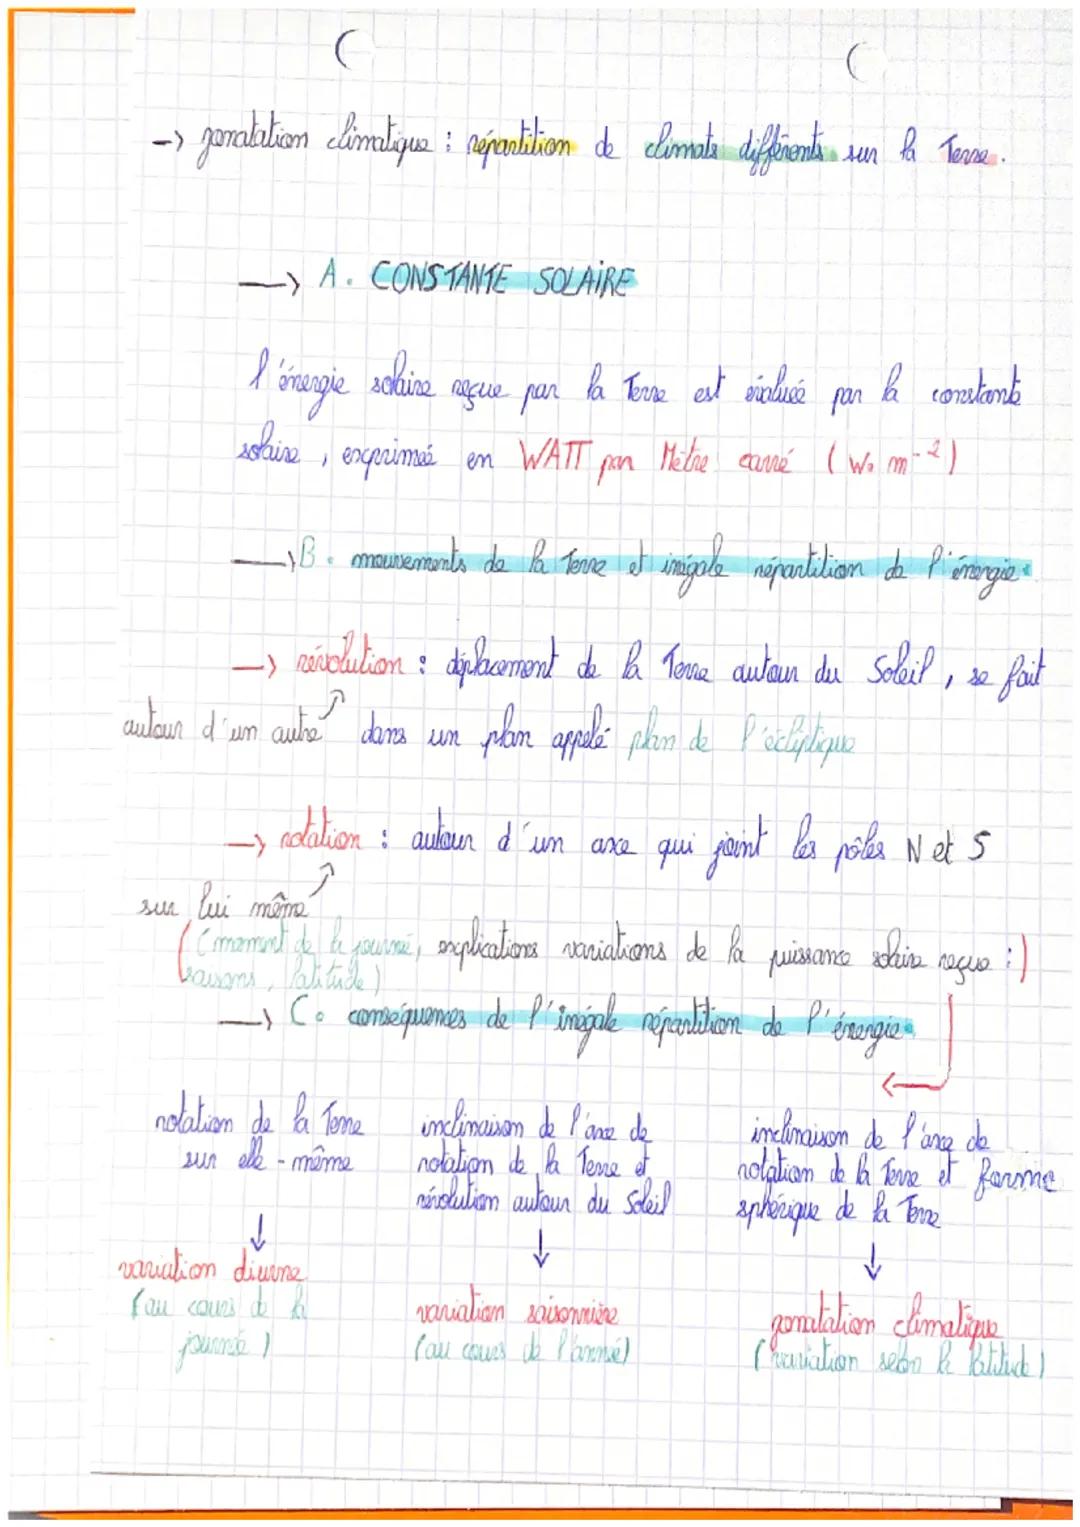 -> zonatation climatique : répartition de climats différents sur la Terre.
—> A. CONSTANTE SOLAIRE
l'énergie solaire reçue par la Terre est évaluée par la constante
solaire, exprimée en WATT par Mètre carré (W. m⁻²)
—> B. mouvements de la Terre et inégale répartition de l'énergie.
—> révolution : déplacement de la Terre autour du Soleil, se fait
autour d'un autre dans un plan appelé plan de l'écliptique
—> rotation : autour d'un axe qui joint les pôles N et S
sur lui même
(moment de la journée, explications variations de la puissance solaire reçue :)
saisons, latitude)
—> C. conséquences de l'inégale répartition de l'énergie.
rotation de la Terre
sur elle-même
↓
variation diurne
(au cours de la
journée)
inclinaison de l'axe de
rotation de la Terre et
révolution autour du Soleil
↓
variation saisonnière
(au cours de l'année)
inclinaison de l'axe de
rotation de la Terre et forme
sphérique de la Terre
↓
zonatation climatique
(variation selon la latitude)